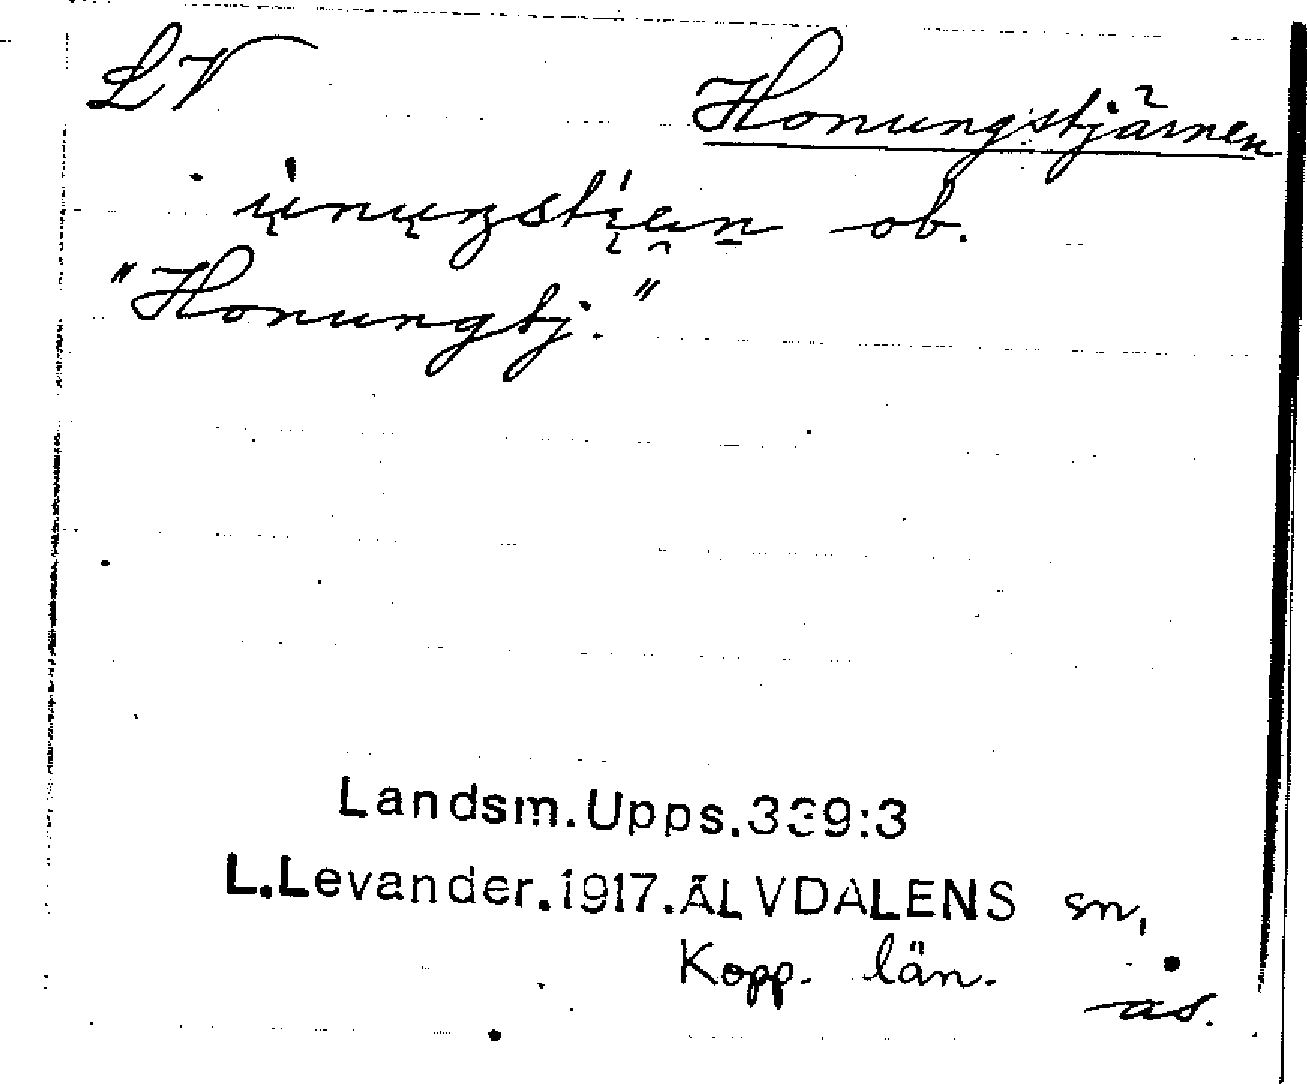 LV
Honungstjärnen
ų̇nųŋstįęn ob.
"Honungtj."
Landsm.Upps.339:3
L.Levander.1917.ÄLVDALENS sn,
Kopp. län.
as.